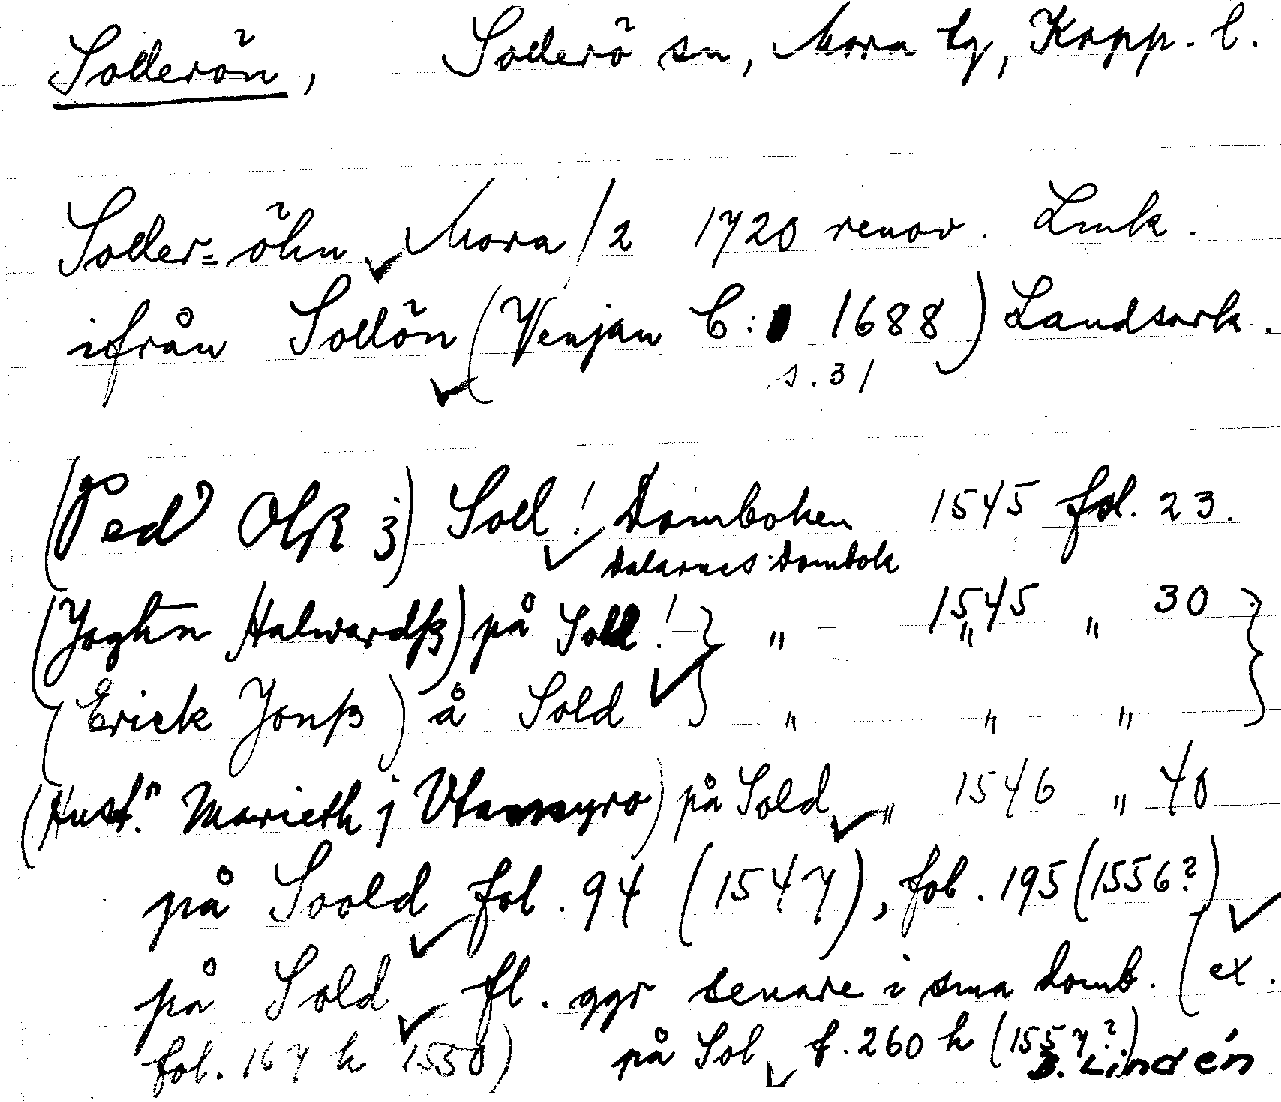 Sollerön, Sollerö sn, Mora tg, Kopp. l.
Soller=öhn Mora/2 1720 renov. Lmk.
ifrån Sollön (Venjan C: 1688) Landsark.
s. 31
(Ped Olß j) Soll! Domboken 1545 fol. 23.
Dalarnes Dombok
Halwardß) på Soll! } „ – 1545 „ 30 }
(Erick Jonß) å Sold } „ „ „ }
(Hust. Marieth j Utamyro) på Sold „ 1546 „ 40
på Soold fol. 94 (1547), fol. 195 (1556?)
på Sold fl. ggr senare i sma domb. (ex.
fol. 167 h 1550) på Sol f. 260 h (1557?)
B. Lindén